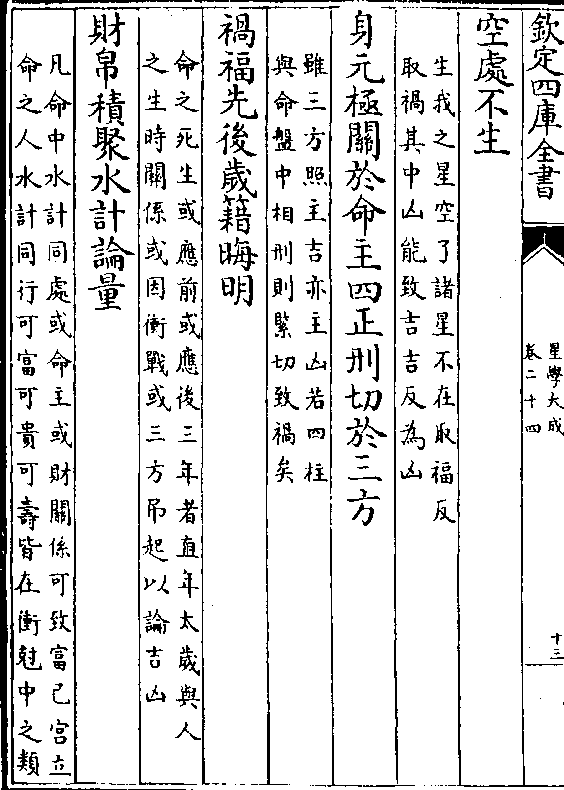 欽定四庫全書
星學大成
卷二十四
十三
空處不生
生我之星空了諸星不在取福反
取禍其中凶能致吉吉反為凶
身元極關於命主四正刑切於三方
雖三方照主吉亦主凶若四柱
與命盤中相刑則緊切致禍矣
禍福先後歲籍晦明
命之死生或應前或應後三年者直年太歲與人
之生時關係或因衝戰或三方吊起以論吉凶
財帛積聚水計論量
凡命中水計同處或命主或財關係可致富己宮立
命之人水計同行可富可貴可壽皆在衝尅中之類